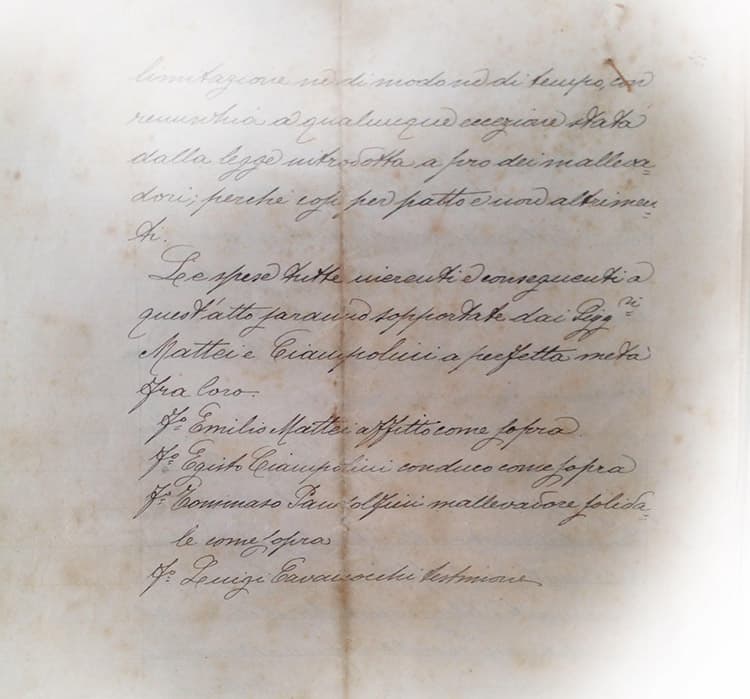 limitazione nè di modo nè di tempo, con
renunzia a qualunque eccezione stata
dalla legge introdotta a pro dei malleva=
dori; perchè così per patto e non altrimen=
ti.
Le spese tutte inerenti e conseguenti a
quest'atto saranno sopportate dai Sigg.ri
Mattei e Ciampolini a perfetta metà
fra loro.
Fo. Emilio Mattei affitto come sopra
Fo. Egisto Ciampolini conduco come sopra
Fo. Tommaso Pandolfini mallevadore solida=
le come sopra
Fo. Luigi testimone